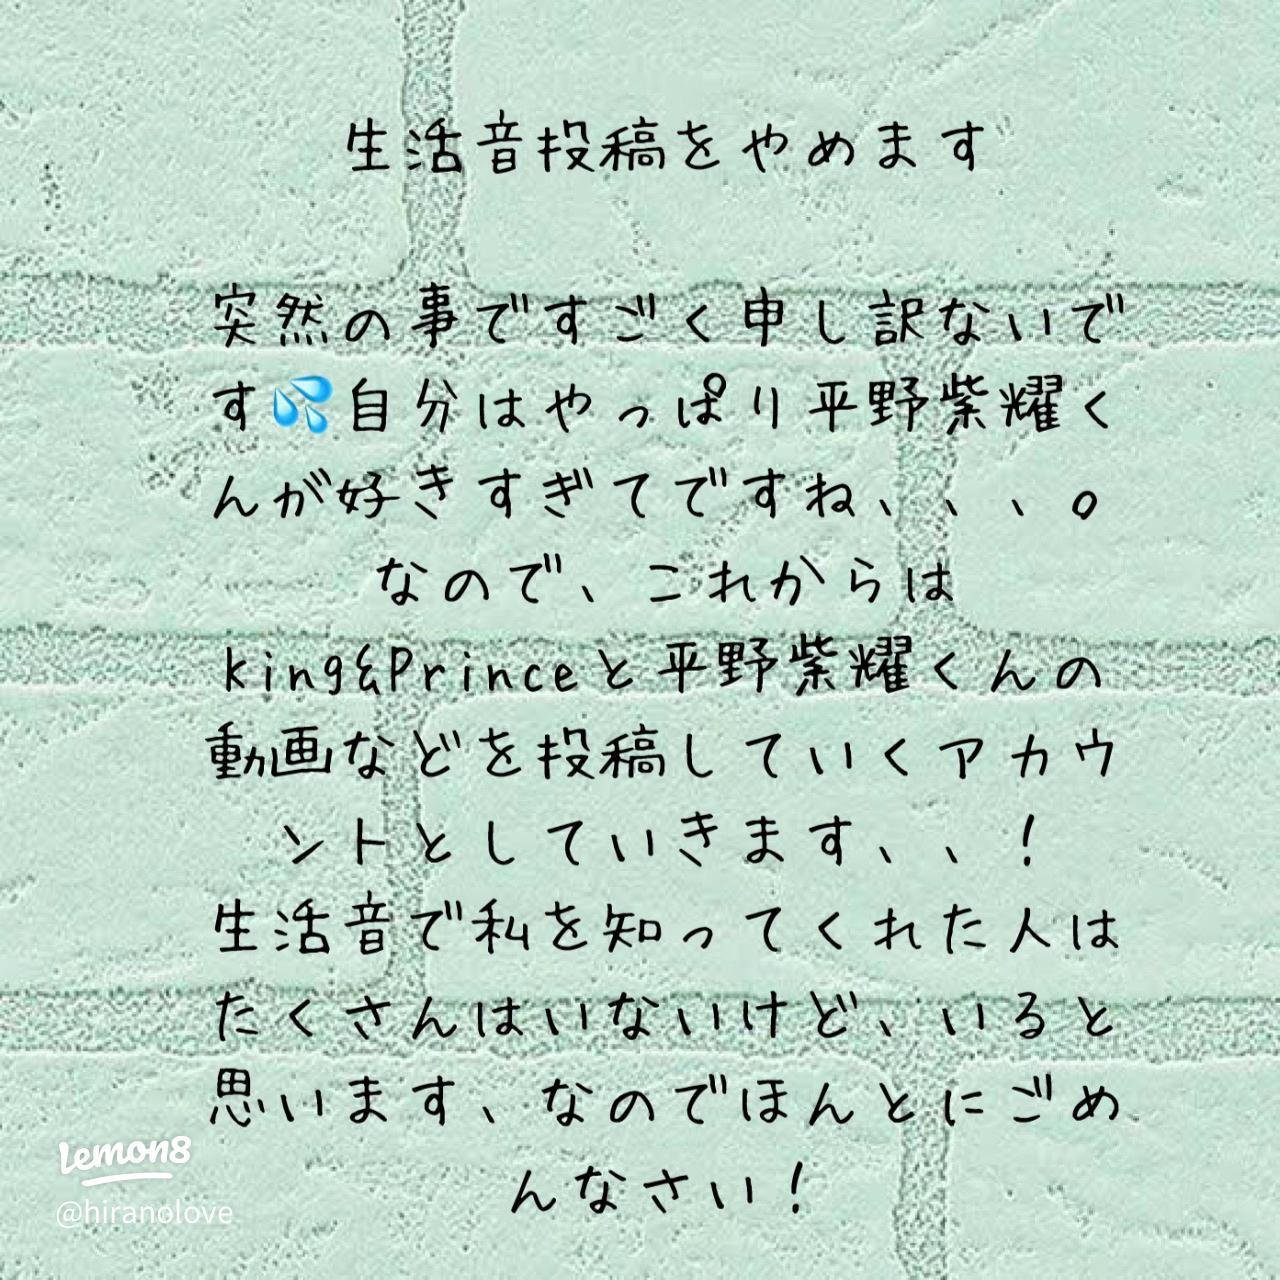 生活音投稿をやめます
突然の事ですごく申し訳ないで
す💦自分はやっぱり平野紫耀く
んが好きすぎてですね、、、。
なので、これからは
king&Princeと平野紫耀くんの
動画などを投稿していくアカウ
ントとしていきます、、！
生活音で私を知ってくれた人は
たくさんはいないけど、いると
思います、なのでほんとにごめ
んなさい！
Lemon8
@hiranolove